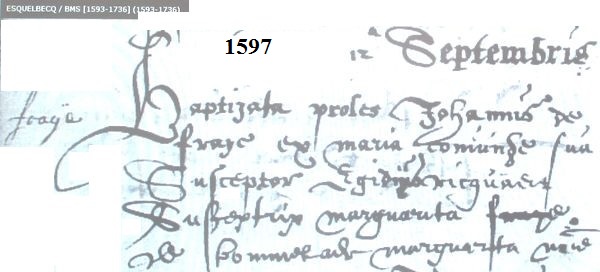 ESQUELBECQ / BMS [1593-1736] (1593-1736)
1597
12a Septembris
fraÿe
Baptizata proles Johannis de
fraye ex maria Coniunge sua
Susceptor Egidius ricquaert
Susceptrix margareta fraye
de margarita